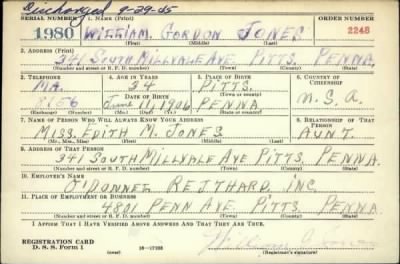 Discharged 9-29-45
SERIAL NUMBER 1. NAME (Print) ORDER NUMBER
1980 WILLIAM GORDON JONES 2248
(First) (Middle) (Last)
2. ADDRESS (Print)
341 SOUTH MILLVALE AVE PITTS. PENNA.
(Number and street or R. F. D. number) (Town) (County) (State)
3. TELEPHONE 4. AGE IN YEARS 5. PLACE OF BIRTH 6. COUNTRY OF CITIZENSHIP
MA. 34 PITTS.
DATE OF BIRTH (Town or county)
8186 June 11, 1906 PENNA U. S. A.
(Exchange) (Number) (Mo.) (Day) (Yr.) (State or country)
7. NAME OF PERSON WHO WILL ALWAYS KNOW YOUR ADDRESS 8. RELATIONSHIP OF THAT PERSON
MISS. EDITH M. JONES AUNT.
(Mr., Mrs., Miss) (First) (Middle) (Last)
9. ADDRESS OF THAT PERSON
341 SOUTH MILLVALE AVE PITTS. PENNA.
(Number and street or R. F. D. number) (Town) (County) (State)
10. EMPLOYER'S NAME
INC.
11. PLACE OF EMPLOYMENT OR BUSINESS
4801 PENN AVE. PITTS. PENNA
(Number and street or R. F. D. number) (Town) (County) (State)
I AFFIRM THAT I HAVE VERIFIED ABOVE ANSWERS AND THAT THEY ARE TRUE.
REGISTRATION CARD
D. S. S. Form 1 (over) William Jones
(Registrant's signature)